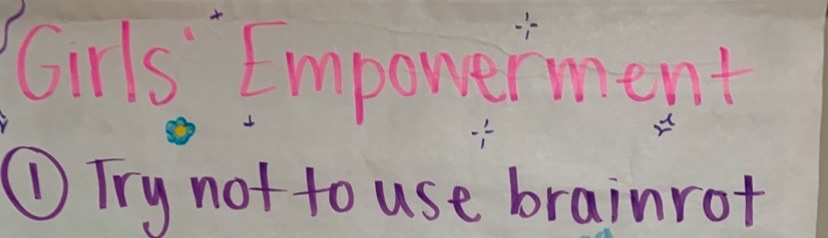 Girls' Empowerment
① Try not to use brainrot